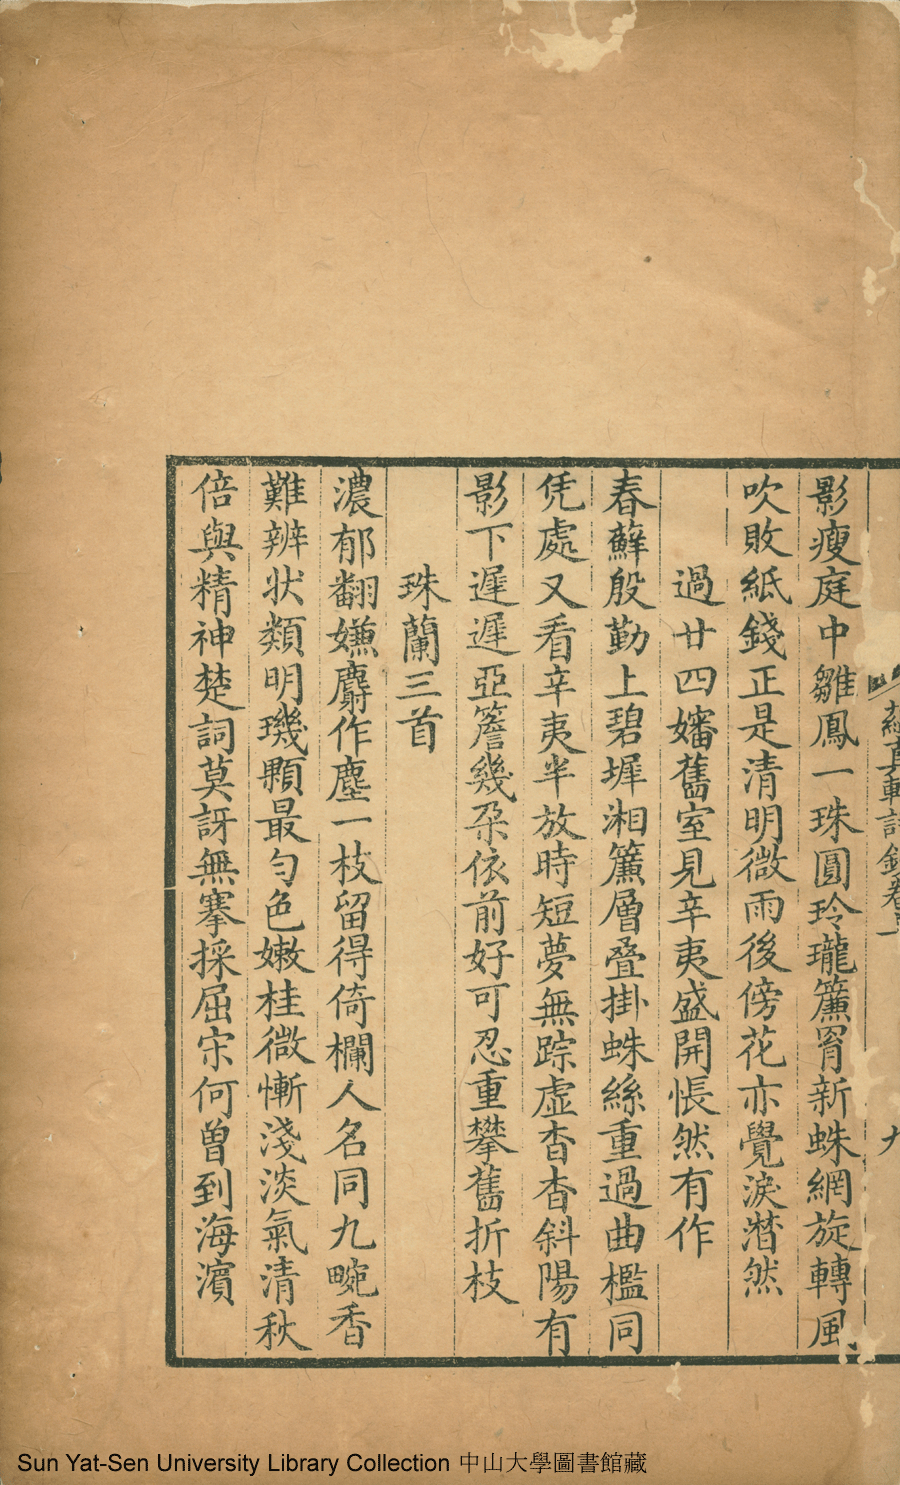 影瘦庭中雛鳳一珠圓玲瓏簾罥新蛛網旋轉風
吹敗紙錢正是清明微雨後傍花亦覺淚潸然
過廿四嬸舊室見辛夷盛開悵然有作
春蘚殷勤上碧墀湘簾層叠掛蛛絲重過曲檻同
凭處又看辛夷半放時短夢無踪虛杳杳斜陽有
影下遲遲亞簷幾朶依前好可忍重攀舊折枝
珠蘭三首
濃郁翻嫌麝作塵一枝留得倚欄人名同九畹香
難辨状類明璣顆最勻色嫩桂微慚淺淡氣清秋
倍與精神楚詞莫訝無搴採屈宋何曾到海濱
Sun Yat-Sen University Library Collection 中山大學圖書館藏